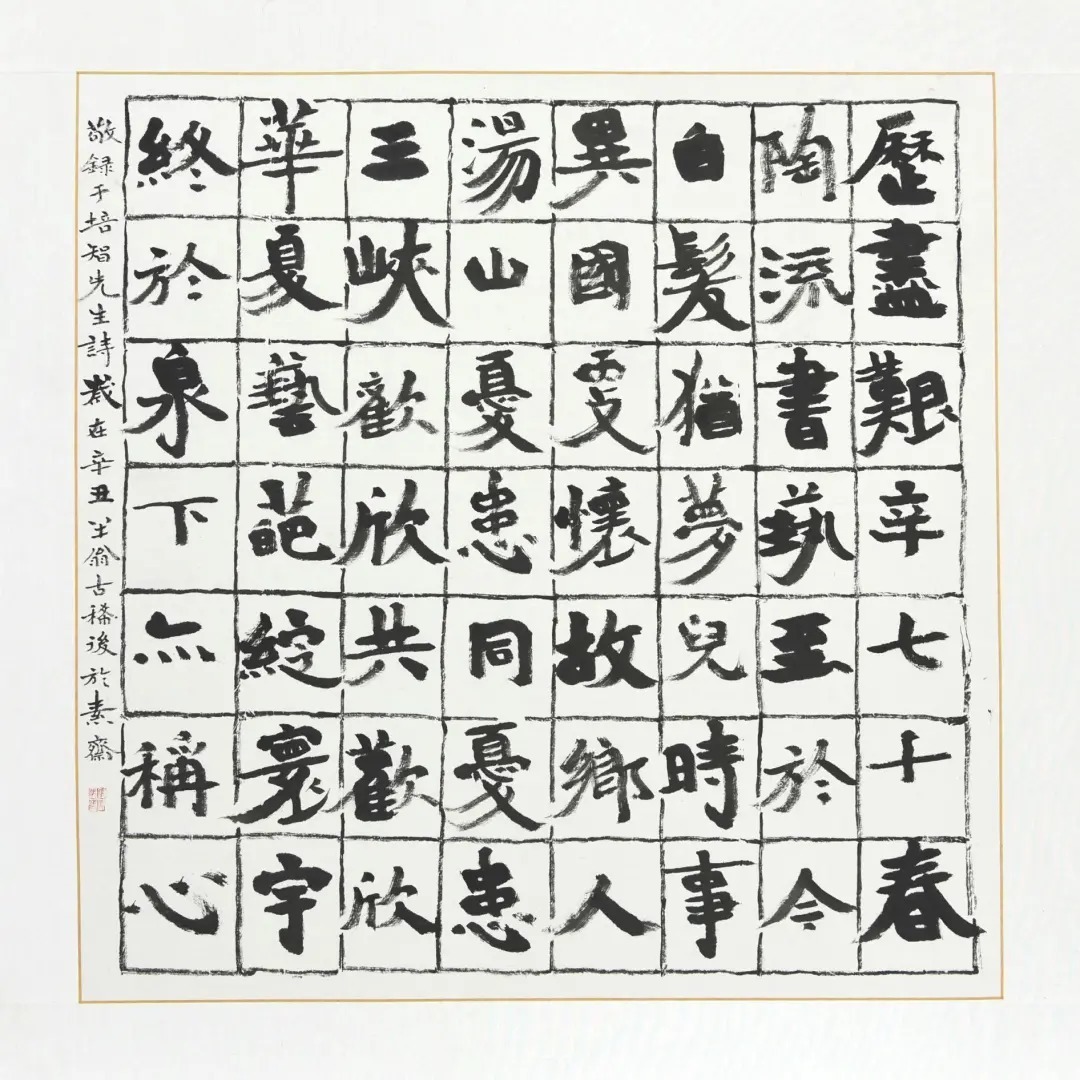 歷盡艱辛七十春
陶流書藝至於今
白髮猶夢兒時事
異國更懷故鄉人
湯山憂患同憂患
三峽歡欣共歡欣
華夏藝葩綻寰宇
終於泉下亦稱心
敬録于培智先生詩歲在辛丑坐翁古稀後於素齋